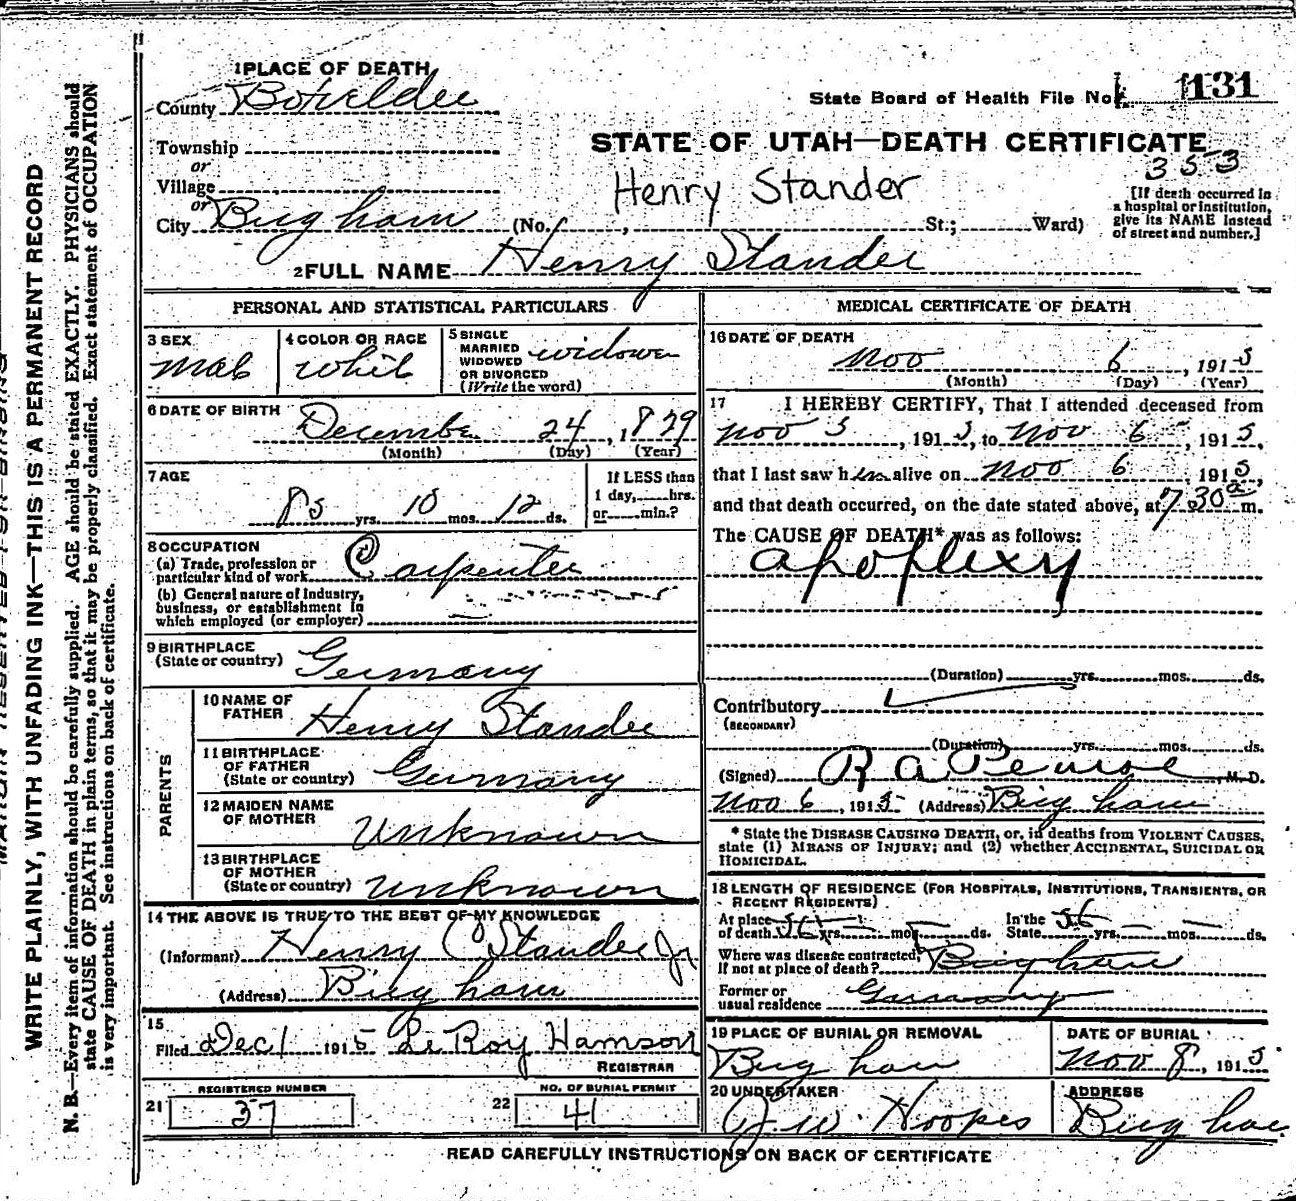 1 PLACE OF DEATH
County Boxelder
State Board of Health File No. 131
Township
STATE OF UTAH—DEATH CERTIFICATE
353
or
Village
Henry Stander
[If death occurred in a hospital or institution, give its NAME instead of street and number.]
or
City Brigham (No. , St.; Ward)
2 FULL NAME Henry Stander
PERSONAL AND STATISTICAL PARTICULARS
3 SEX
Male
4 COLOR OR RACE
White
5 SINGLE
MARRIED
WIDOWED
OR DIVORCED
(Write the word)
widower
6 DATE OF BIRTH
December 24, 1829
(Month) (Day) (Year)
7 AGE
85 yrs. 10 mos. 12 ds.
If LESS than
1 day, hrs.
or min.?
8 OCCUPATION
(a) Trade, profession or
particular kind of work Carpenter
(b) General nature of industry,
business, or establishment in
which employed (or employer)
9 BIRTHPLACE
(State or country) Germany
PARENTS
10 NAME OF
FATHER Henry Stander
11 BIRTHPLACE
OF FATHER
(State or country) Germany
12 MAIDEN NAME
OF MOTHER Unknown
13 BIRTHPLACE
OF MOTHER
(State or country) Unknown
14 THE ABOVE IS TRUE TO THE BEST OF MY KNOWLEDGE
(Informant) Henry C Stander Jr
(Address) Brigham
15
Filed Dec 1 1915 LeRoy Hamson
REGISTRAR
REGISTERED NUMBER
21 37
NO. OF BURIAL PERMIT
22 41
MEDICAL CERTIFICATE OF DEATH
16 DATE OF DEATH
Nov 6, 1915
(Month) (Day) (Year)
17 I HEREBY CERTIFY, That I attended deceased from
Nov 3, 1915, to Nov 6, 1915,
that I last saw him alive on Nov 6, 1915,
and that death occurred, on the date stated above, at 7 30 a m.
The CAUSE OF DEATH* was as follows:
apoplexy
(Duration) yrs. mos. ds.
Contributory
(SECONDARY)
(Duration) yrs. mos. ds.
(Signed) R A Pearse, M. D.
Nov 6, 1915 (Address) Brigham
* State the DISEASE CAUSING DEATH, or, in deaths from VIOLENT CAUSES,
state (1) MEANS OF INJURY; and (2) whether ACCIDENTAL, SUICIDAL OR
HOMICIDAL.
18 LENGTH OF RESIDENCE (FOR HOSPITALS, INSTITUTIONS, TRANSIENTS, OR
RECENT RESIDENTS)
At place
of death 56 yrs. mos. ds.
In the
State 56 yrs. mos. ds.
Where was disease contracted,
if not at place of death? Brigham
Former or
usual residence Germany
19 PLACE OF BURIAL OR REMOVAL
Brigham
DATE OF BURIAL
Nov 8, 1915
20 UNDERTAKER
J. W. Hoopes
ADDRESS
Brigham
READ CAREFULLY INSTRUCTIONS ON BACK OF CERTIFICATE
WRITE PLAINLY, WITH UNFADING INK—THIS IS A PERMANENT RECORD
N. B.—Every item of information should be carefully supplied. AGE should be stated EXACTLY. PHYSICIANS should
state CAUSE OF DEATH in plain terms, so that it may be properly classified. Exact statement of OCCUPATION
is very important. See instructions on back of certificate.